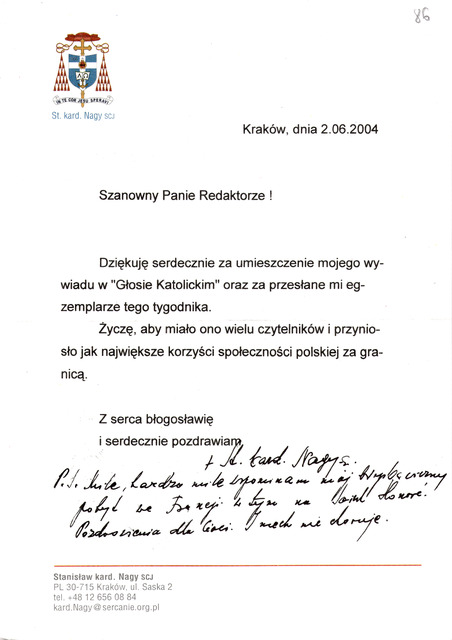 86
IN TE COR JESU SPERAVI
St. kard. Nagy SCJ
Kraków, dnia 2.06.2004
Szanowny Panie Redaktorze !
Dziękuję serdecznie za umieszczenie mojego wy-
wiadu w "Głosie Katolickim" oraz za przesłane mi eg-
zemplarze tego tygodnika.
Życzę, aby miało ono wielu czytelników i przynio-
sło jak największe korzyści społeczności polskiej za gra-
nicą.
Z serca błogosławię
i serdecznie pozdrawiam
+ St. kard. Nagy
P.S. Mile, bardzo mile wspominam mój
pobyt we Francji w tym na Saint Honoré.
Pozdrowienia dla Cioci. Niech nie choruje.
Stanisław kard. Nagy SCJ
PL 30-715 Kraków, ul. Saska 2
tel. +48 12 656 08 84
kard.Nagy@sercanie.org.pl